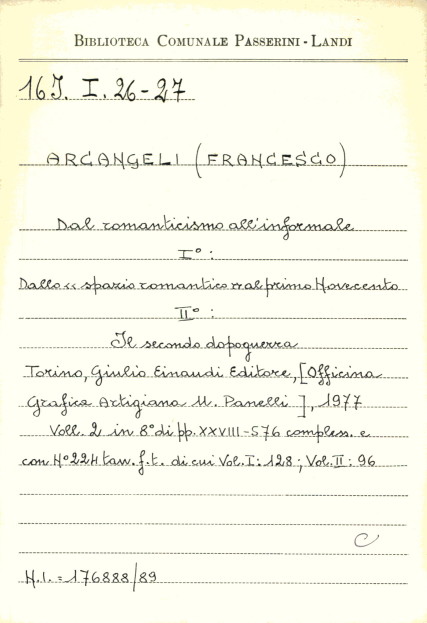 BIBLIOTECA COMUNALE PASSERINI - LANDI
16J. I. 26-27
ARCANGELI (FRANCESCO)
Dal romanticismo all'informale
I° :
Dallo << spazio romantico >> al primo Novecento
II° :
Il secondo dopoguerra
Torino, Giulio Einaudi Editore, [Officina
Grafica Artigiana U. Panelli ], 1977
Voll. 2 in 8° di pp. XXVIII-576 compless. e
con N° 224 tav. f.t. di cui Vol. I: 128 ; Vol. II: 96
C
N.I. = 176888/89